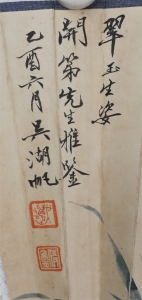 翠玉生姿
開第先生雅鑒
乙酉六月吳湖帆